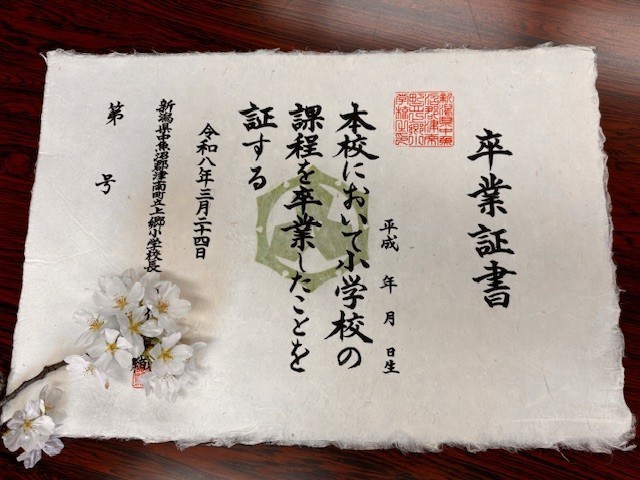 卒業証書
平成　年　月　日生
本校において小学校の
課程を卒業したことを
証する
令和八年三月二十四日
新潟県中魚沼郡津南町立上郷小学校長
第　号